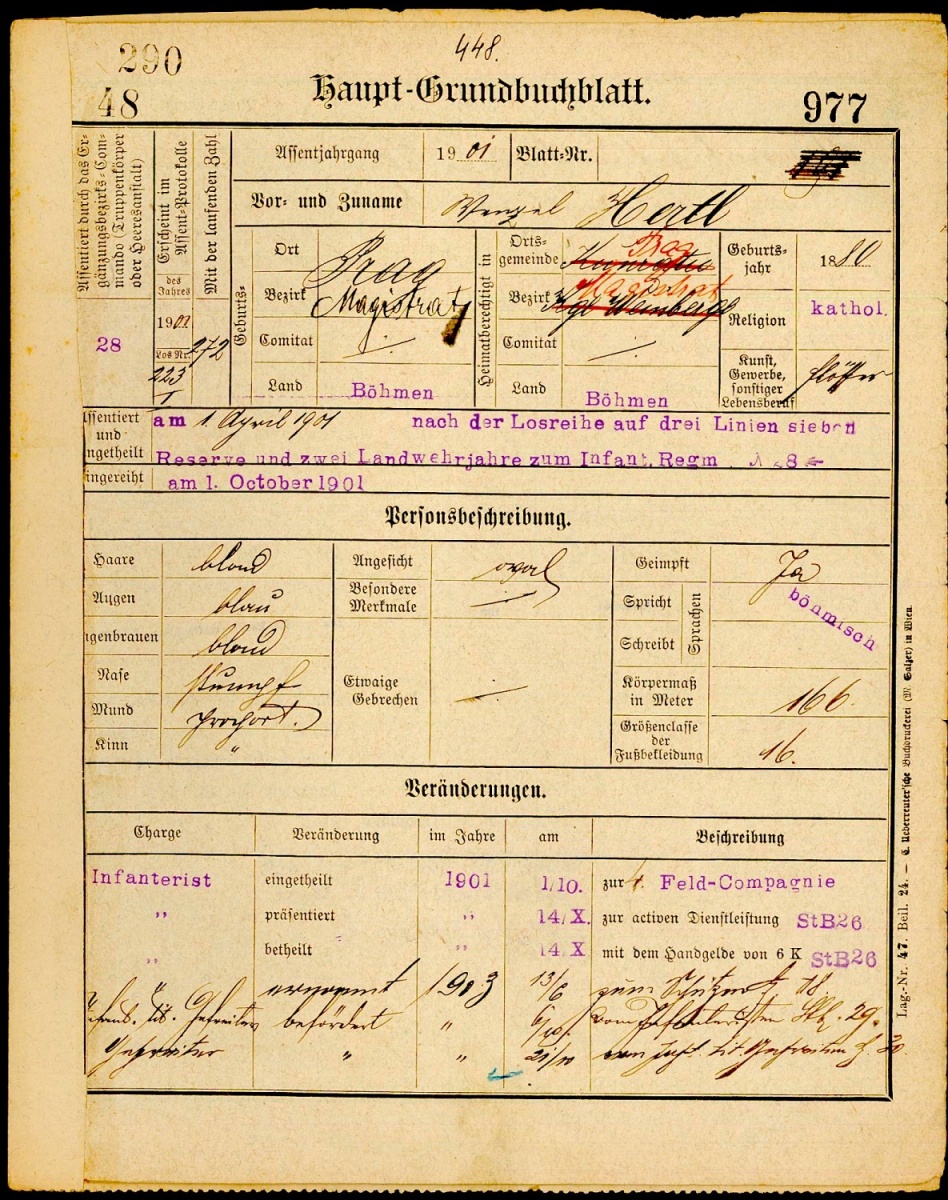 448.
290
48
Haupt-Grundbuchblatt.
977
Assentiert durch das Er-
gänzungsbezirks-Com-
mando (Truppenkörper
oder Heeresanstalt)
28
Erscheint im
Assent-Protokolle
des
Jahres
1901
Los Nr.
223
I
Mit der laufenden Zahl
272
Assentjahrgang 1901 Blatt-Nr.
Vor- und Zuname Wenzel Hertl
Geburts-
Ort Prag
Bezirk Magistrat
Comitat ./.
Land Böhmen
Heimatberechtigt in
Orts-
gemeinde Prag
Bezirk Magistrat
Kgl Weinberge
Comitat ./.
Land Böhmen
Geburts-
jahr 1880
Religion kathol.
Kunst,
Gewerbe,
sonstiger
Lebensberuf
ssentiert
und
ngetheilt
am 1 April 1901 nach der Losreihe auf drei Linien sieben
Reserve und zwei Landwehrjahre zum Infant. Regm 28
ingereiht am 1. October 1901
Personsbeschreibung.
Haare blond
Augen blau
genbrauen blond
Nase stumpf
Mund proport.
Kinn "
Angesicht oval
Besondere
Merkmale ./.
Etwaige
Gebrechen ./.
Geimpft Ja
Spricht
Schreibt
Sprachen
böhmisch
Körpermaß
in Meter 166.
Größenclasse
der
Fußbekleidung 16.
Veränderungen.
Charge Veränderung im Jahre am Beschreibung
Infanterist eingetheilt 1901 1/10. zur 4. Feld-Compagnie
" präsentiert " 14/X. zur activen Dienstleistung StB26
" betheilt " 14/X mit dem Handgelde von 6 K StB26
" ernannt 1903 13/6 zum 18.
tit. Gefreiter befördert " vom Infanteristen 29.
Gefreiter " " 21/11 vom Inft. tit. Gefreiten 30
Lag.-Nr. 47. Beil. 24. — C. Ueberreuter'sche Buchdruckerei (M. Salzer) in Wien.